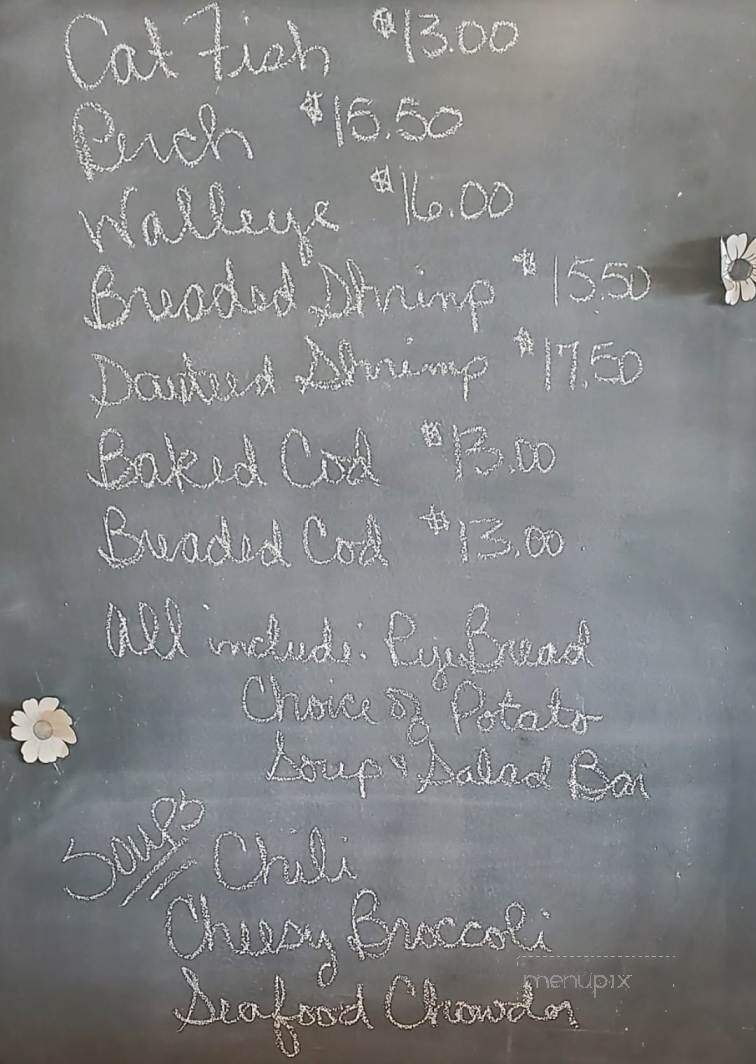 Cat Fish $13.00
Perch $15.50
Walleye $16.00
Breaded Shrimp $15.50
Sauteed Shrimp $17.50
Baked Cod $13.00
Breaded Cod $13.00
All include: Rye Bread
Choice of Potato
Soup & Salad Bar
Soups Chili
Cheesy Broccoli
menupix
Seafood Chowder